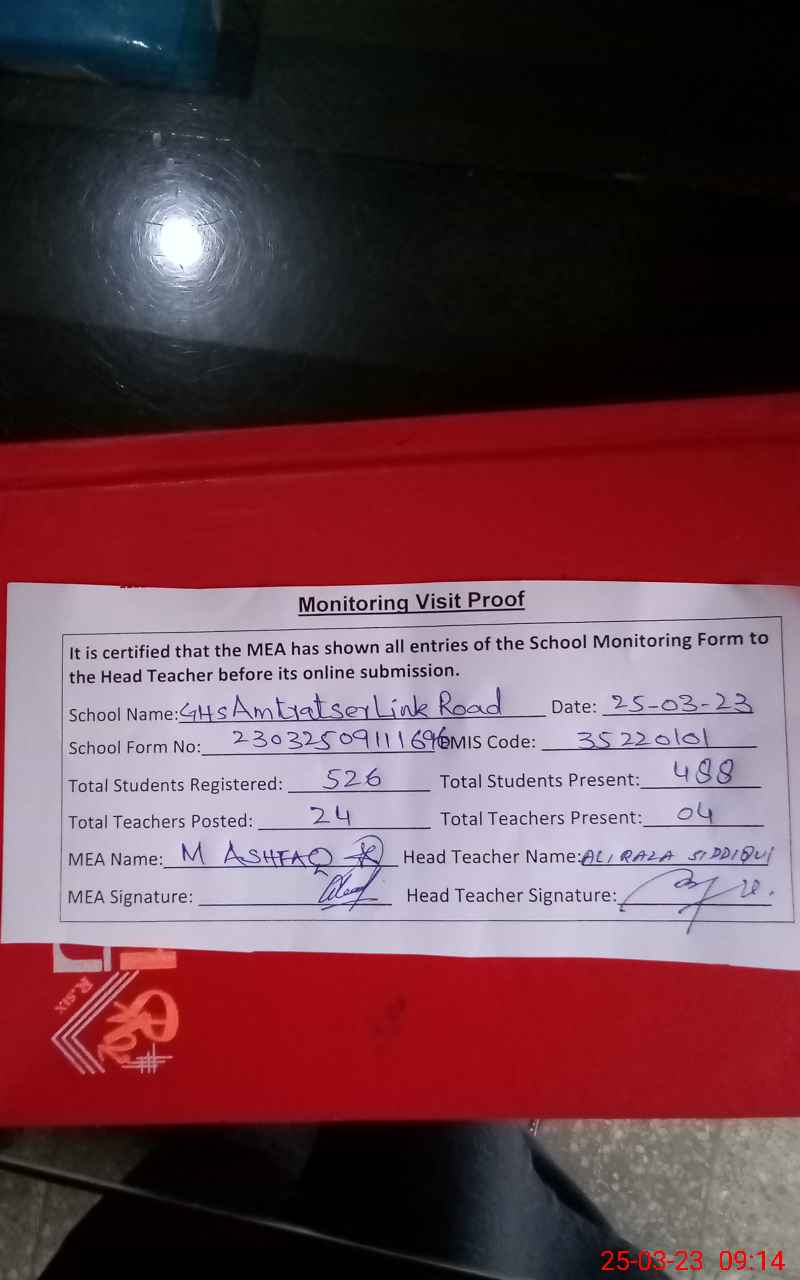 Monitoring Visit Proof
It is certified that the MEA has shown all entries of the School Monitoring Form to
the Head Teacher before its online submission.
School Name: GHS Amtratser Link Road Date: 25-03-23
School Form No: 23032509111696 EMIS Code: 35220101
Total Students Registered: 526 Total Students Present: 488
Total Teachers Posted: 24 Total Teachers Present: 04
MEA Name: M ASHFAQ Head Teacher Name: ALI RAZA SIDDIQUI
MEA Signature: Head Teacher Signature:
R.SIX
25-03-23 09:14